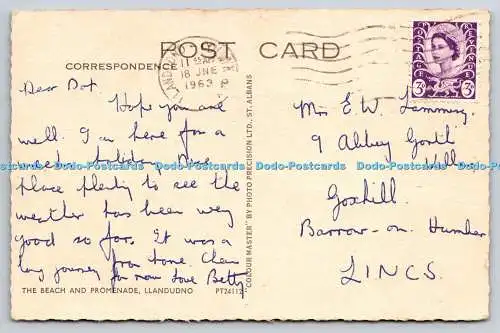 POST CARD
CORRESPONDENCE
LLANDUDNO
11 15AM
18 JNE
1963
3D 3D
Dear Dot.
Hope you are
well. I am here for a
week holiday. Nice
place plenty to see the
weather has been very
good so far. It was a
long journey from home. Cheers
for now love Betty
THE BEACH AND PROMENADE, LLANDUDNO
PT24112
"COLOUR MASTER" BY PHOTO PRECISION LTD., ST. ALBANS
Mrs E. W.
9 Abbey
Goxhill
Barrow-on-Humber
LINCS.
Dodo-Postcards Dodo-Postcards Dodo-Postcards Dodo-Postcards Dodo-Postcards